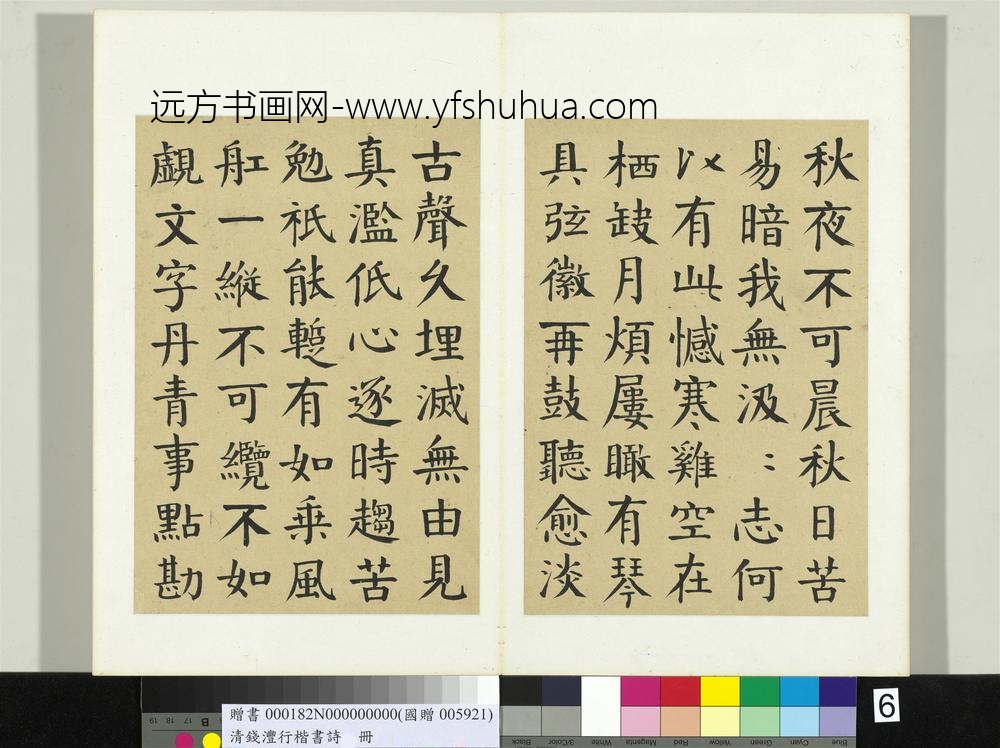 远方书画网-www.yfshuhua.com
秋夜不可晨秋日苦
易暗我無汲〻志何
以有此憾寒雞空在
栖缺月煩屢瞰有琴
具弦徽再鼓聽愈淡
古聲久埋滅無由見
真濫低心逐時趨苦
勉祇能暫有如乘風
舡一縱不可纜不如
覷文字丹青事點勘
贈書 000182N000000000(國贈 005921)
清錢灃行楷書詩 冊
6
Black
3/Color
White
Magenta
Red
Yellow
Green
Cyan
Blue
19 18 17 16 B